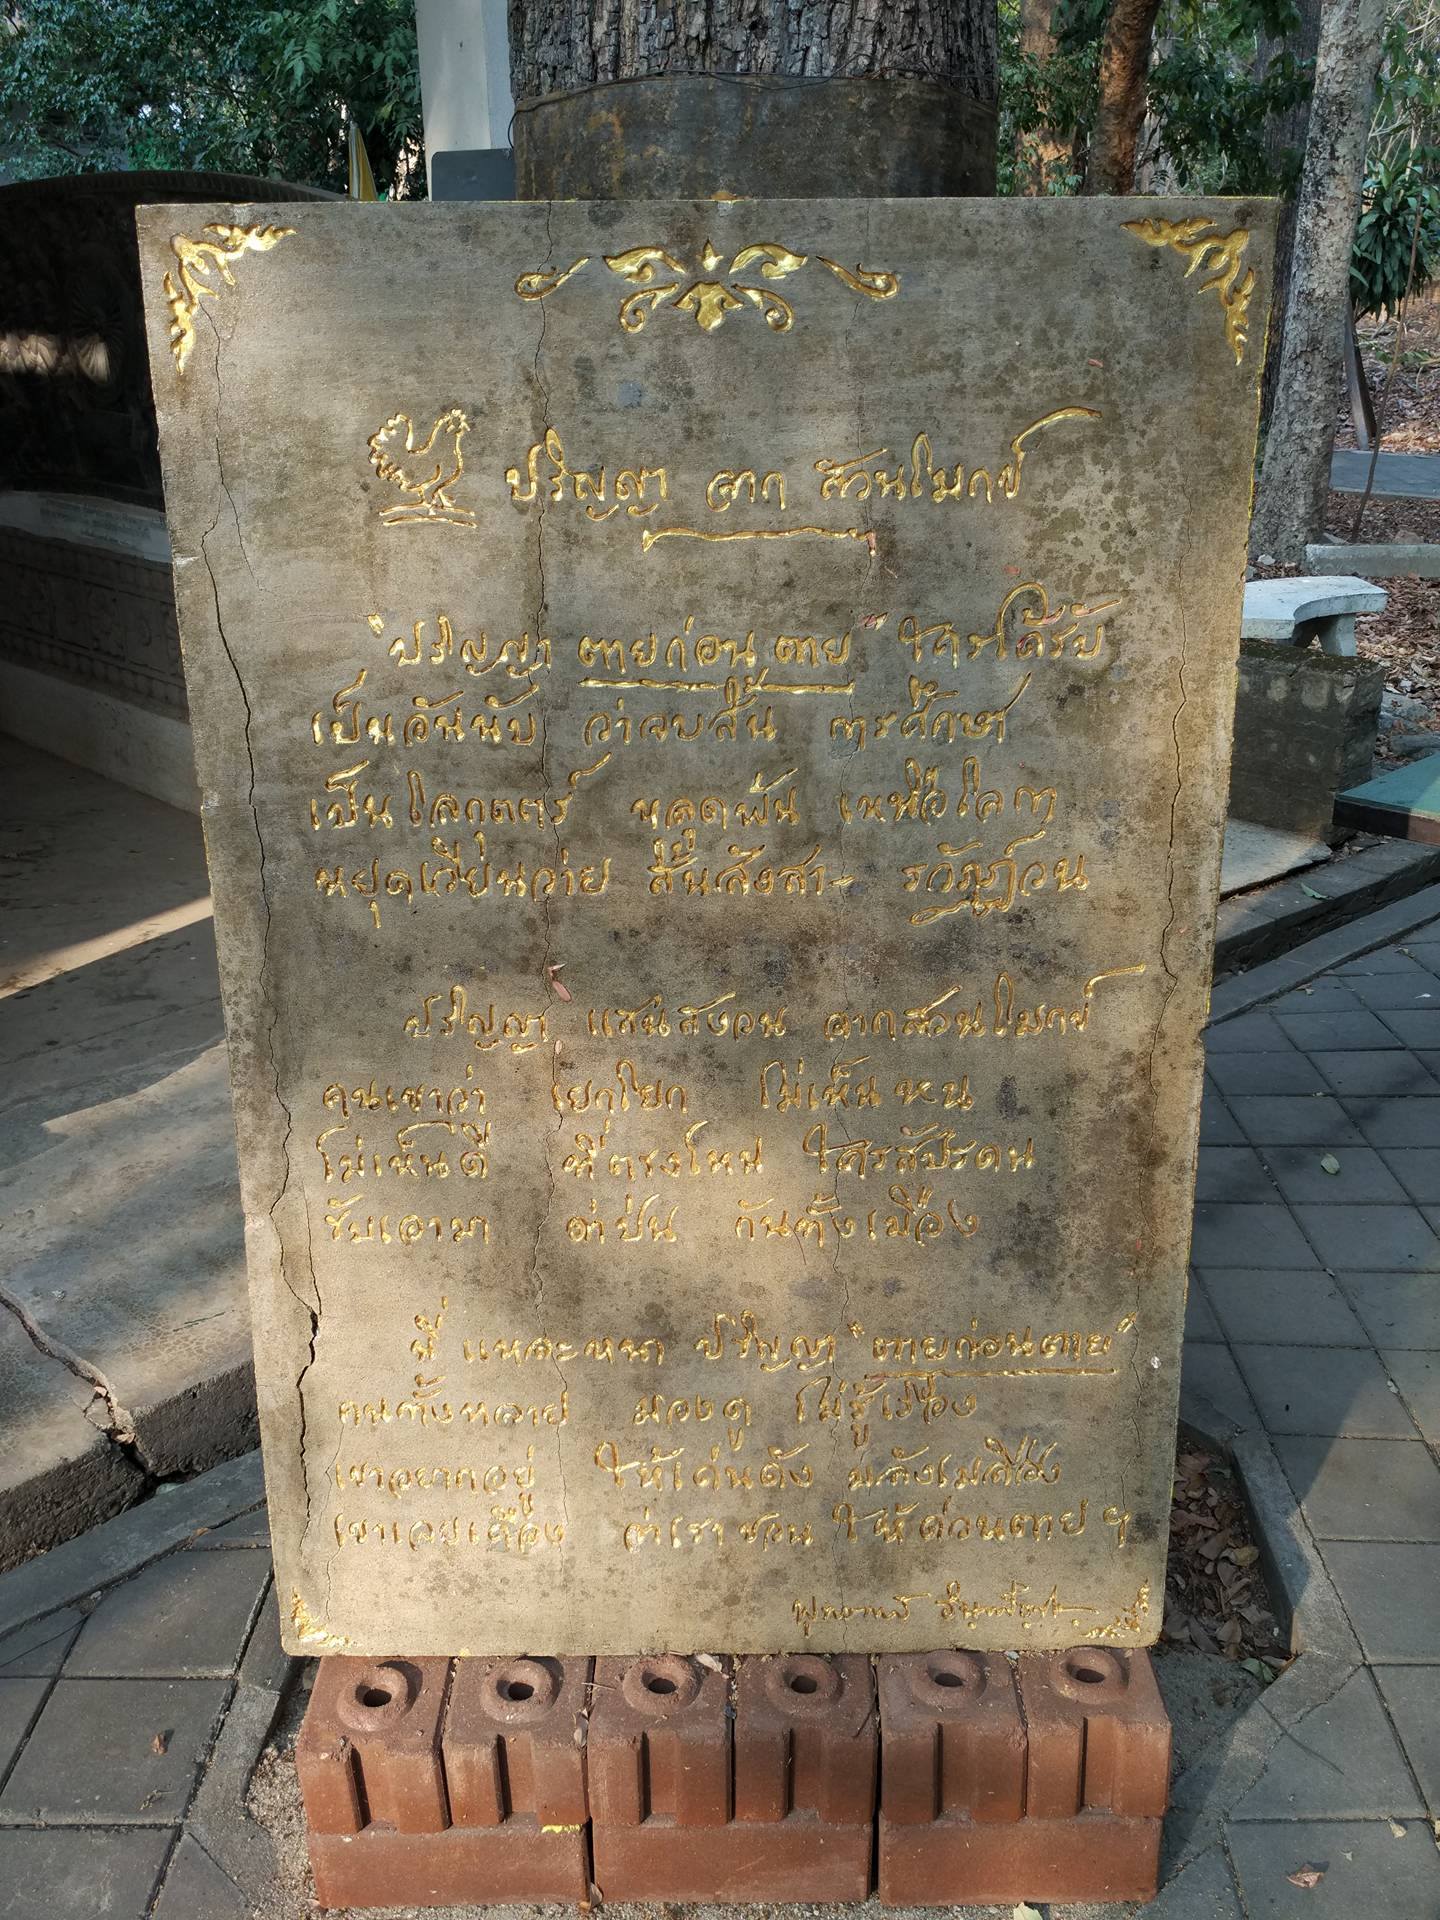 ปริญญา จาก สวนโมกข์
"ปริญญา ตายก่อนตาย" ใครได้รับ
เป็นอันนับ ว่าจบสิ้น การศึกษา
เป็นโลกุตตร์ หลุดพ้น เหนือโลกา
หยุดเวียนว่าย สิ้นสังสา- รวัฏฏ์วน
ปริญญา แสนสงวน จากสวนโมกข์
คนเขาว่า เยกโยก ไม่เห็นหน
ไม่เห็นดี ที่ตรงไหน ใครสัปรดน
รับเอามา ด่าป่น กันทั้งเมือง
นี่ แหละหนา ปริญญา "ตายก่อนตาย"
คนทั้งหลาย มองดู ไม่รู้เรื่อง
เขาอยากอยู่ ให้เด่นดัง มลังเมลือง
เขาเลยเคือง ว่าเราชวน ให้ด่วนตายฯ
พุทธทาส อินทปัญโญ